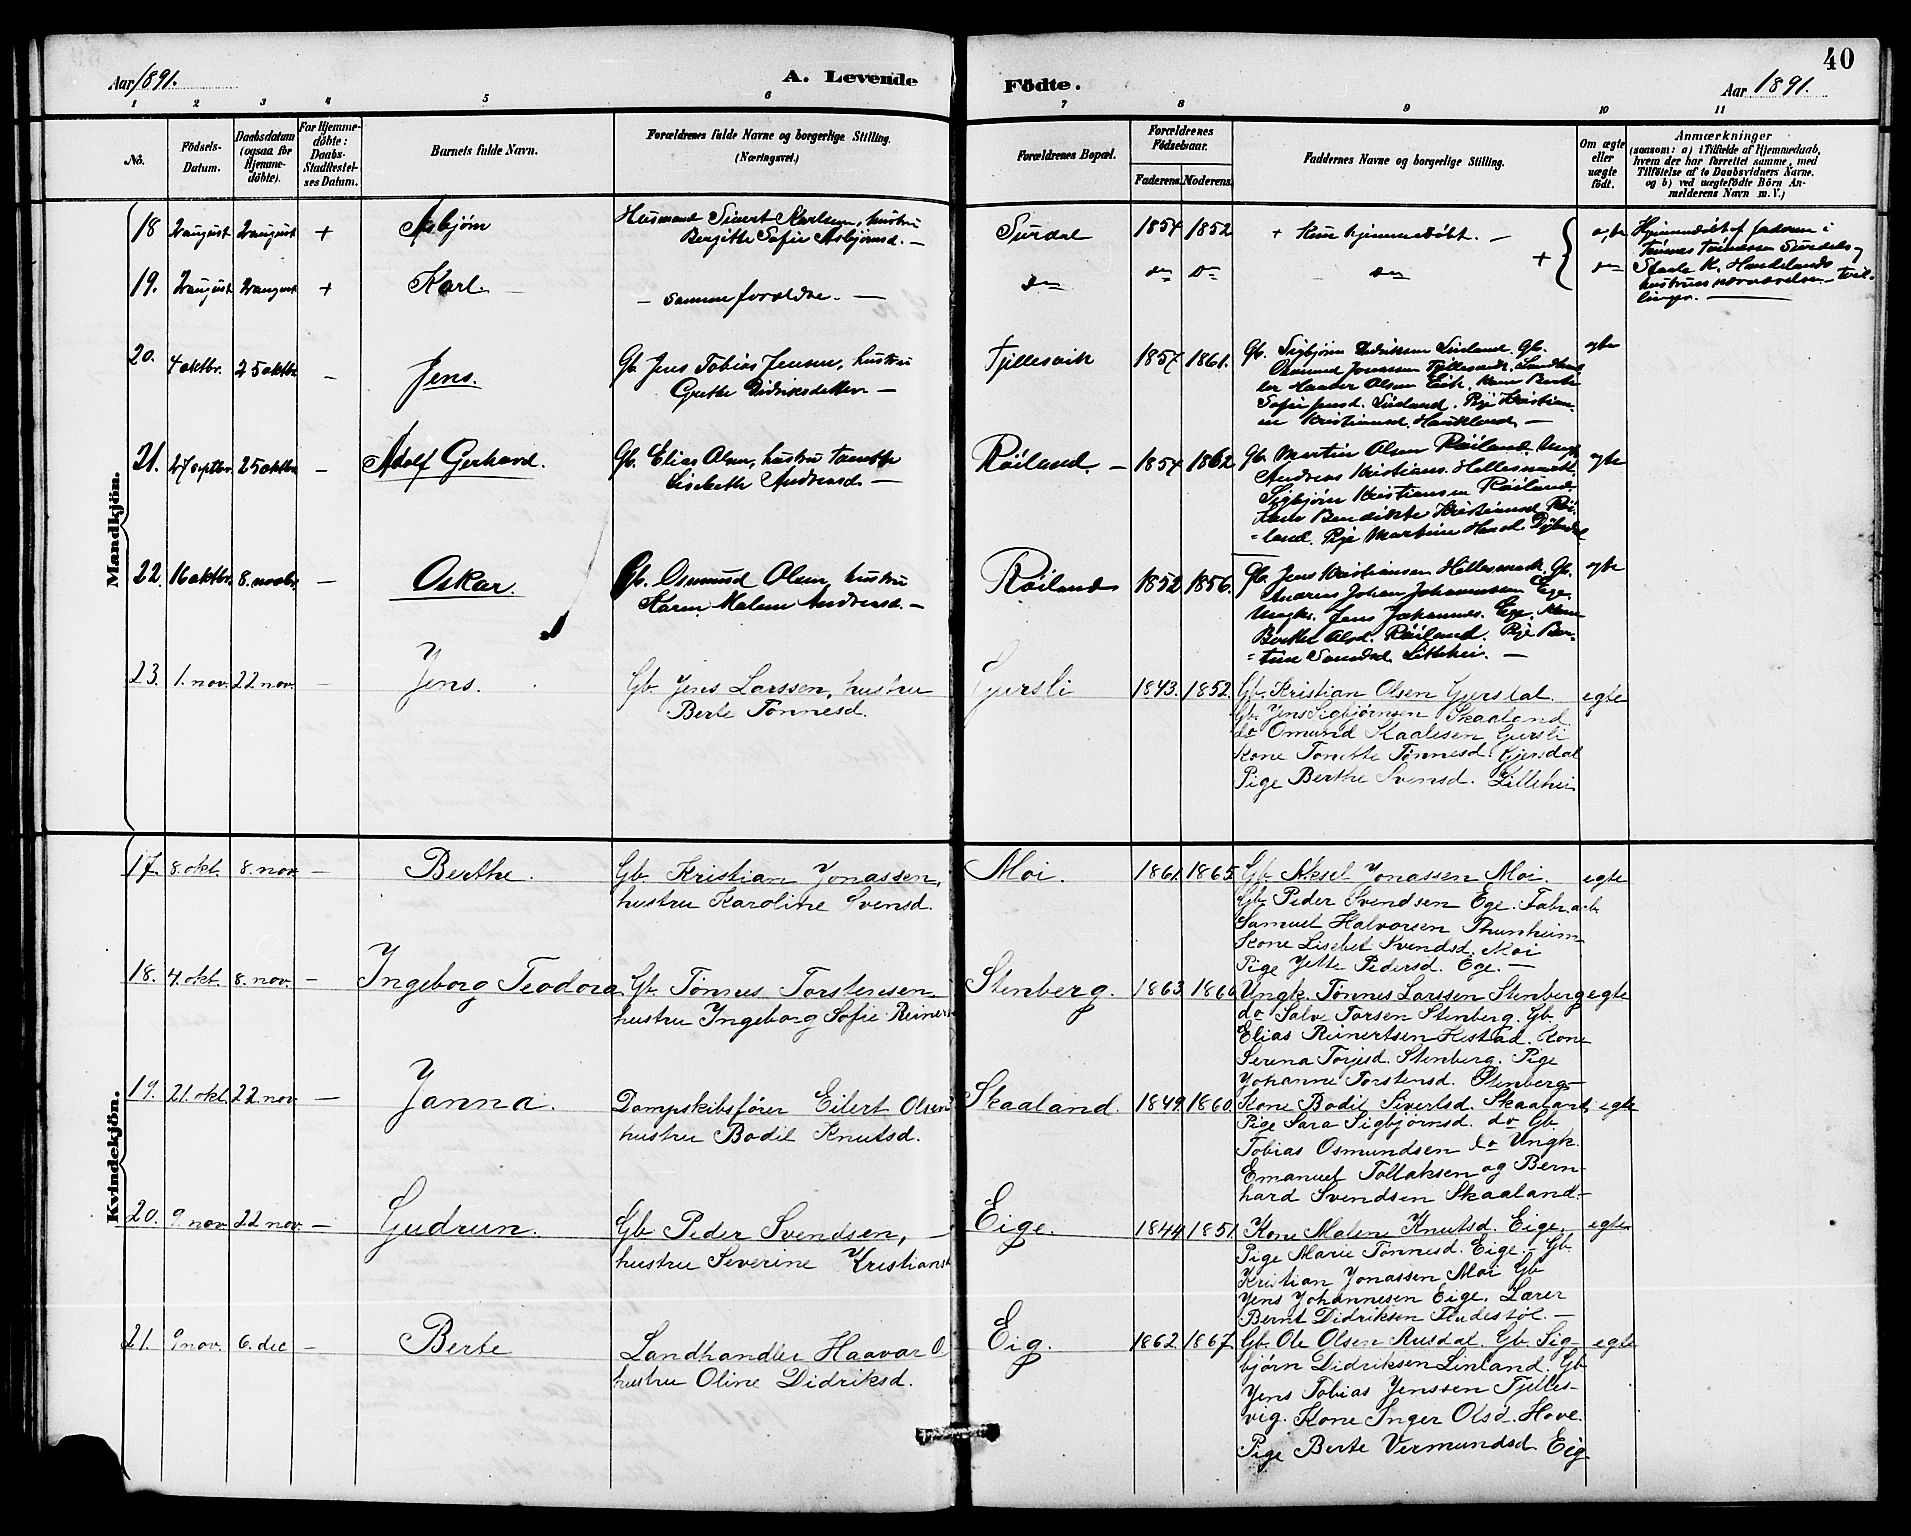 40
Aar 1891.
A. Levende Födte.
Aar 1891.
1 2 3 4 5 6 7 8 9 10 11
No.
Födsels-
Datum.
Daabsdatum
(ogsaa for
Hjemme-
döbte).
For Hjemme-
döbte:
Daabs-
Stadfæstel-
ses Datum.
Barnets fulde Navn.
Forældrenes fulde Navne og borgerlige Stilling.
(Næringsvei.)
Forældrenes Bopæl.
Forældrenes
Födselsaar.
Faderens. Moderens.
Faddernes Navne og borgerlige Stilling.
Om ægte
eller
uægte
födt.
Anmærkninger
(saasom: a) i Tilfælde af Hjemmedaab,
hvem der har forrettet samme, med
Tilföielse af to Daabsvidners Navne,
og b) ved uægtefödte Börn An-
melderens Navn m. V.)
Mandkjön.
18 2 august 2 august + Asbjørn
Husmand Sivert Karlsen, hustru
Bergitte Sofie Asbjørnsd. —
Surdal 1854 1852 + Kun hjemmedøbt. —
Hjemmedøbt af faderen i
Tønnes Tønnessen Surdals og
19. 2 august 2 august + Karl.
— samme forældre. —
do do do do do
hustrus nærværelse — tvil-
linger.
20. 4 oktbr. 25 oktbr. — Jens.
Gb. Jens Tobias Jensen, hustru
Grethe Didriksdatter —
Fjellesvik 1854 1861.
Gb. Sigbjørn Didriksen Linland. Gb.
Osmund Jonassen Fjellesvik. Landhand
ler Haaver Olsen Eik. Kone Berte
Sofie Jensd. Linland. Pige Kristian-
ne Kristiansd. Haukland. —
egte
21. 27 septbr. 25 oktbr. — Adolf Gerhard.
Gb. Elias Olsen, hustru Tanette
Lisebeth Andreasd. —
Røiland. — 1854 1862
Gb. Martin Olsen Røiland. Ungk.
Andreas Kristians. Hellesmark.
Sigbjørn Kristiansen Røiland.
Kone Bendikte Kristiansd. Røi-
land. Pige Martine Hansd.
egte
22. 16 oktbr. 8. novbr. — Oskar.
Gb. Osmund Olsen, hustru
Karen Malene Andreasd. —
Røiland 1852 1856.
Gb. Jens Kristiansen Hellesmark. Gb.
Andreas Johan Johannessen Ege.
Ungk. Jens Johannes. Ege. Kone
Berthe Olsd. Røiland. Pige Ber-
tine Lillehei. —
egte
23. 1. nov. 22 nov. — Jens.
Gb. Jens Larssen, hustru
Berte Tønnesd.
Gursli 1843. 1852.
Gb. Kristian Olsen Gurstal.
Gb. Jens Sigbjørnsen Skaaland
do Omund Staalesen Gursli
Kone Tonette Tønnesd. Gjendal
Pige Berthe Svensd. Lillehei
egte
Kvindekjön.
17. 8. okt. 8. nov. — Berthe.
Gb. Kristian Jonassen,
hustru Karoline Svensd.
Moi. 1861. 1865.
Gb. Aksel Jonassen Moi.
Gb. Peder Svendsen Ege. Fabr.arb.
Samuel Halvorsen Thunheim
Kone Lisebet Svendsd. Moi
Pige Jette Pedersd. Ege. —
egte
18. 4. okt. 8. nov. — Ingeborg Teodora
Gb. Tønnes Torstensen,
hustru Ingeborg Sofie Reinerts
Stenberg. 1863. 1860
Ungk. Tønnes Larssen Stenberg
do Salve Torsen Stenberg. Gb.
Elias Reinertsen Hestad. Kone
Serena Torjesd. Stenberg. Pige
Johanne Torstensd. Stenberg —
egte
19. 21. okt. 22 nov. — Janna.
Dampskibsfører Eilert Olsen
hustru Bodil Knutsd.
Skaaland. 1849. 1860.
Kone Bodil Sivertsd. Skaaland.
Pige Sara Sigbjørnsd. do Gb.
Tobias Osmundsen do Ungk.
Emanuel Tollaksen og Bern-
hard Svendsen Skaaland —
egte
20. 9. nov. 22 nov. — Gudrun.
Gb. Peder Svendsen, —
hustru Severine Kristiansd
Eige. 1844. 1851.
Kone Malene Knutsd. Eige.
Pige Marie Tønnesd. Eige. — Gb.
Kristian Jonassen Moi Gb
Jens Johannesen Eige. Lærer
Bernt Didriksen Fludestøl. —
egte
21. 9 nov. 6. dec — Berte
Landhandler Haavar O.
hustru Oline Didriksd.
Eig. 1862. 1867.
Gb. Ole Olsen Ausdal. Gb. Sig-
bjørn Didriksen Linland. Gb
Jens Tobias Jenssen Fjelles-
vig. Kone Inger Olsd. Hove.
Pige Berte Vermundsd Eig
egte